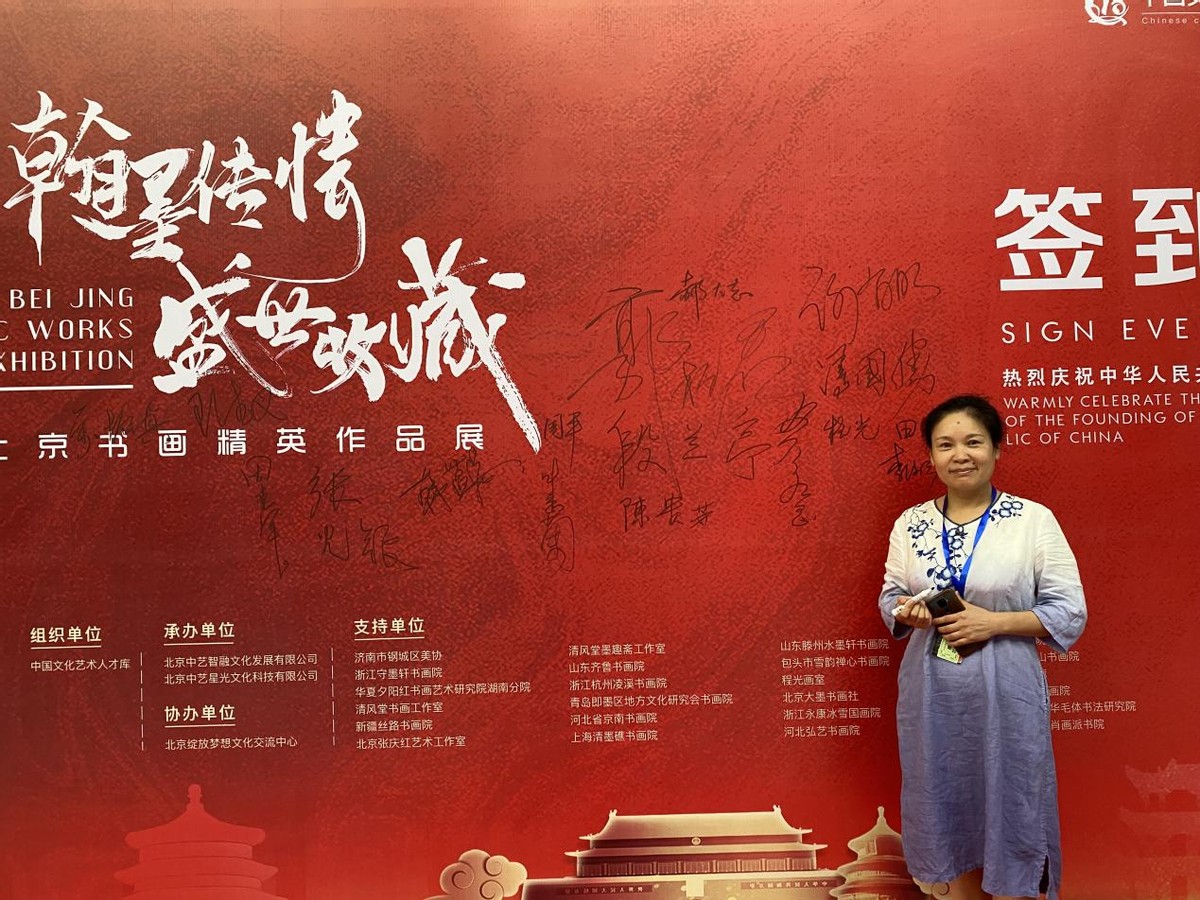 翰墨传情
盛世收藏
BEI JING
C WORKS
XHIBITION
京书画精英作品展
签到
SIGN EVE
热烈庆祝中华人民共
WARMLY CELEBRATE TH
OF THE FOUNDING OF
LIC OF CHINA
Chinese c
郝大志
潘国腾
程光
田
周平
陈贵芳
段兰亭
张光银
组织单位
中国文化艺术人才库
承办单位
北京中艺智融文化发展有限公司
北京中艺星光文化科技有限公司
协办单位
北京绽放梦想文化交流中心
支持单位
济南市钢城区美协
浙江守墨轩书画院
华夏夕阳红书画艺术研究院湖南分院
清风堂书画工作室
新疆丝路书画院
北京张庆红艺术工作室
清风堂墨趣斋工作室
山东齐鲁书画院
浙江杭州凌溪书画院
青岛即墨区地方文化研究会书画院
河北省京南书画院
上海清墨礁书画院
山东滕州水墨轩书画院
包头市雪韵禅心书画院
程光画室
北京大墨书画社
浙江永康冰雪国画院
河北弘艺书画院
山书画院
画院
华毛体书法研究院
肖画派书院